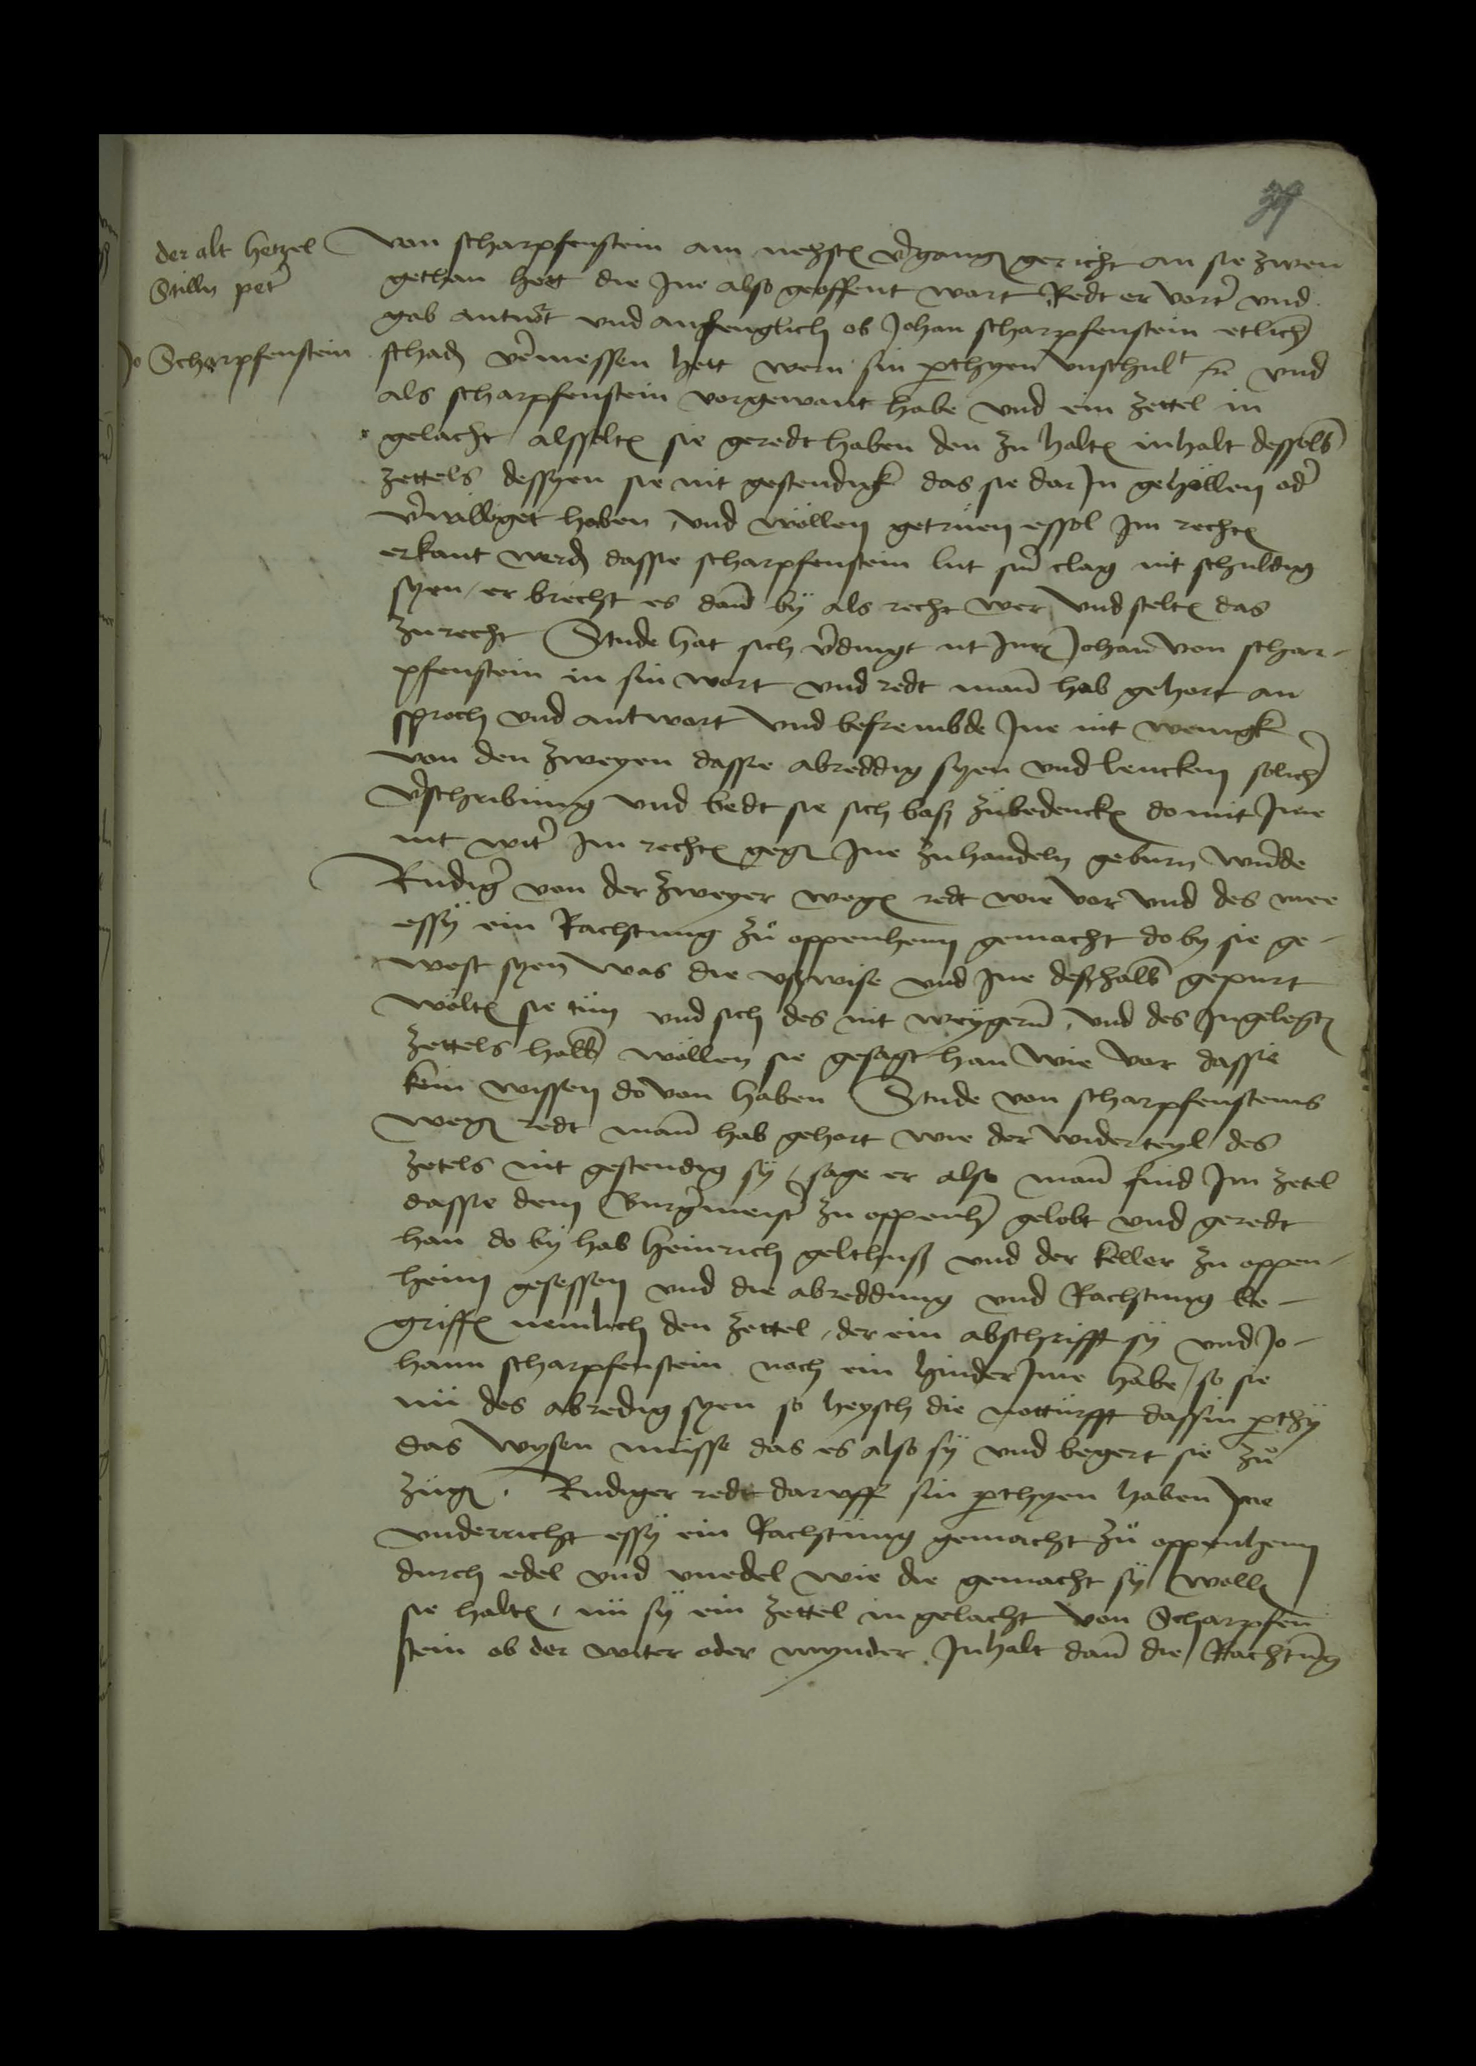 39
der alt Hetzel
Stilln pet(er)
Jo Scharpfenstein
von scharpfenstein am nehst(en) v(er)gang(en) gericht an sie zwen
gethan hett die Ine also geoffent wart Redt er vort(er) vnd
gab antwort vnd anfenglich ob Johan scharpfenstein etlich(en)
schad(en) v(er)messen hett wern sin p(ar)thyen vnschult (etc) vnd
als scharpfenstein vorgewant habe vnd ein zettel in
gelacht alssolt(en) sie geredt haben den zu halt(en) inhalt desselb(en)
zettels dessyen sie nit gestendigk das sie dar In gehollen od(er)
v(er)williget haben vnd wöllen getruen essol Im recht(en)
erkant werd(en) dassie scharpfenstein lut sin(er) clag nit schuldig
syen / er brecht es dan(n) by als recht wer vnd stelt(en) das
zurecht Stude hat sich v(er)dingt ut Jur(is) Johan(n) von schar-
pfenstein in sin wort vnd redt man(n) hab gehort an
sproch vnd antwort vnd befrembde Ine nit wenigk
von den zweyen dassie abreddig syen vnd leucken solich(er)
v(er)schribung vnd bedt sie sich baß zubedenck(en) do mit Ime
nit wit(er) Im recht(en) geg(en) Ine zuhandeln geburn wu(r)de
Rudig(er) von der zweyer weg(en) redt wie vor vnd des mee
essy ein Rachtung zu oppenheim gemacht do by sie ge-
west syen was die vßwise vnd Ine deßhalb(en) gepurt
wölt(en) sie tun vnd sich des nit weyger(e)n vnd des Ingelegt(en)
zettels halb(en) wöllen sie gesagt han wie vor dassie
kein wissen do von haben Stude von scharpfensteins
weg(en) redt man(n) hab gehort wie der widerteyl des
zetels nit gestendig sy / sage er also man(n) find Im zetel
dassie dem Burg(er)meist(er) zu oppenh(eim) gelobt vnd geredt
han do by hab Heinrich gelthuß vnd der keller zu oppen-
heim gesessen vnd die abreddung vnd Rachtung be-
griff(en) nemlich den zettel / der ein abschrifft sy vnd Jo-
hann scharpfenstein noch ein hinder Ime habe / so sie
nu des abredig syen so heysch die notturfft dassin p(ar)thy
das wysen musse das es also sy vnd begert sie zu
züg(en) . Rudiger redt daruff sin p(ar)thyen haben Ine
vnderricht essy ein Rachtung gemacht zu oppenheim
durch edel vnd vnedel wie die gemacht sy woll(en)
sie halt(en) / nu sy ein zettel in gelacht von Scharpfen
stein ob der witer oder mynder Inhalt dan(n) die Rachtung